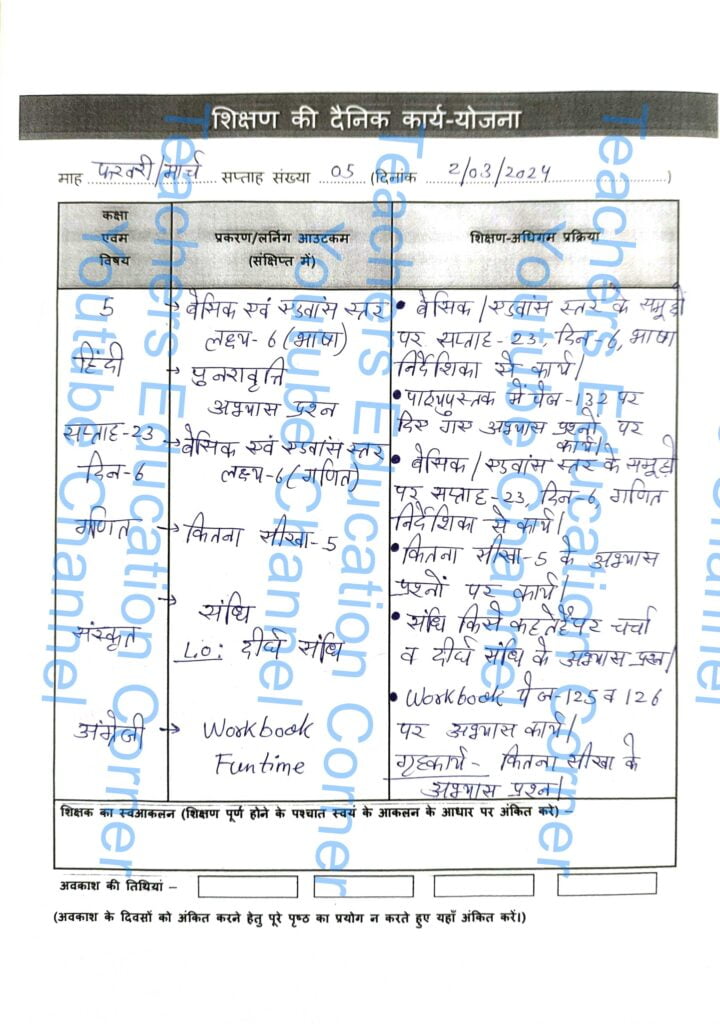 शिक्षण की दैनिक कार्य-योजना
माह फरवरी/मार्च सप्ताह संख्या 05 (दिनांक 2/03/2024)
कक्षा एवम विषय
प्रकरण/लर्निंग आउटकम (संक्षिप्त में)
शिक्षण-अधिगम प्रक्रिया
5
हिंदी
सप्ताह-23
दिन-6
→ बेसिक एवं एडवांस स्तर
लक्ष्य-6 (भाषा)
→ पुनरावृत्ति
अभ्यास प्रश्न
• बेसिक/एडवांस स्तर के समूहों
पर सप्ताह-23, दिन-6, भाषा
निर्देशिका से कार्य।
• पाठ्यपुस्तक में पेज-132 पर
दिए गए अभ्यास प्रश्नों पर
कार्य।
गणित
→ बेसिक एवं एडवांस स्तर
लक्ष्य-6 (गणित)
→ कितना सीखा-5
• बेसिक/एडवांस स्तर के समूहों
पर सप्ताह-23, दिन-6, गणित
निर्देशिका से कार्य।
• कितना सीखा-5 के अभ्यास
प्रश्नों पर कार्य।
संस्कृत
→ संधि
L.O: दीर्घ संधि
• संधि किसे कहते हैं पर चर्चा
व दीर्घ संधि के अभ्यास प्रश्न।
अंग्रेजी
→ Workbook
Funtime
• Workbook पेज-125 व 126
पर अभ्यास कार्य।
गृहकार्य - कितना सीखा के
अभ्यास प्रश्न।
शिक्षक का स्वआकलन (शिक्षण पूर्ण होने के पश्चात स्वयं के आकलन के आधार पर अंकित करें) –
अवकाश की तिथियां –
(अवकाश के दिवसों को अंकित करने हेतु पूरे पृष्ठ का प्रयोग न करते हुए यहाँ अंकित करें।)
Teachers Education Corner
Youtube Channel
Teachers Education Corner
Youtube Channel
Teachers Education Corner
Youtube Channel